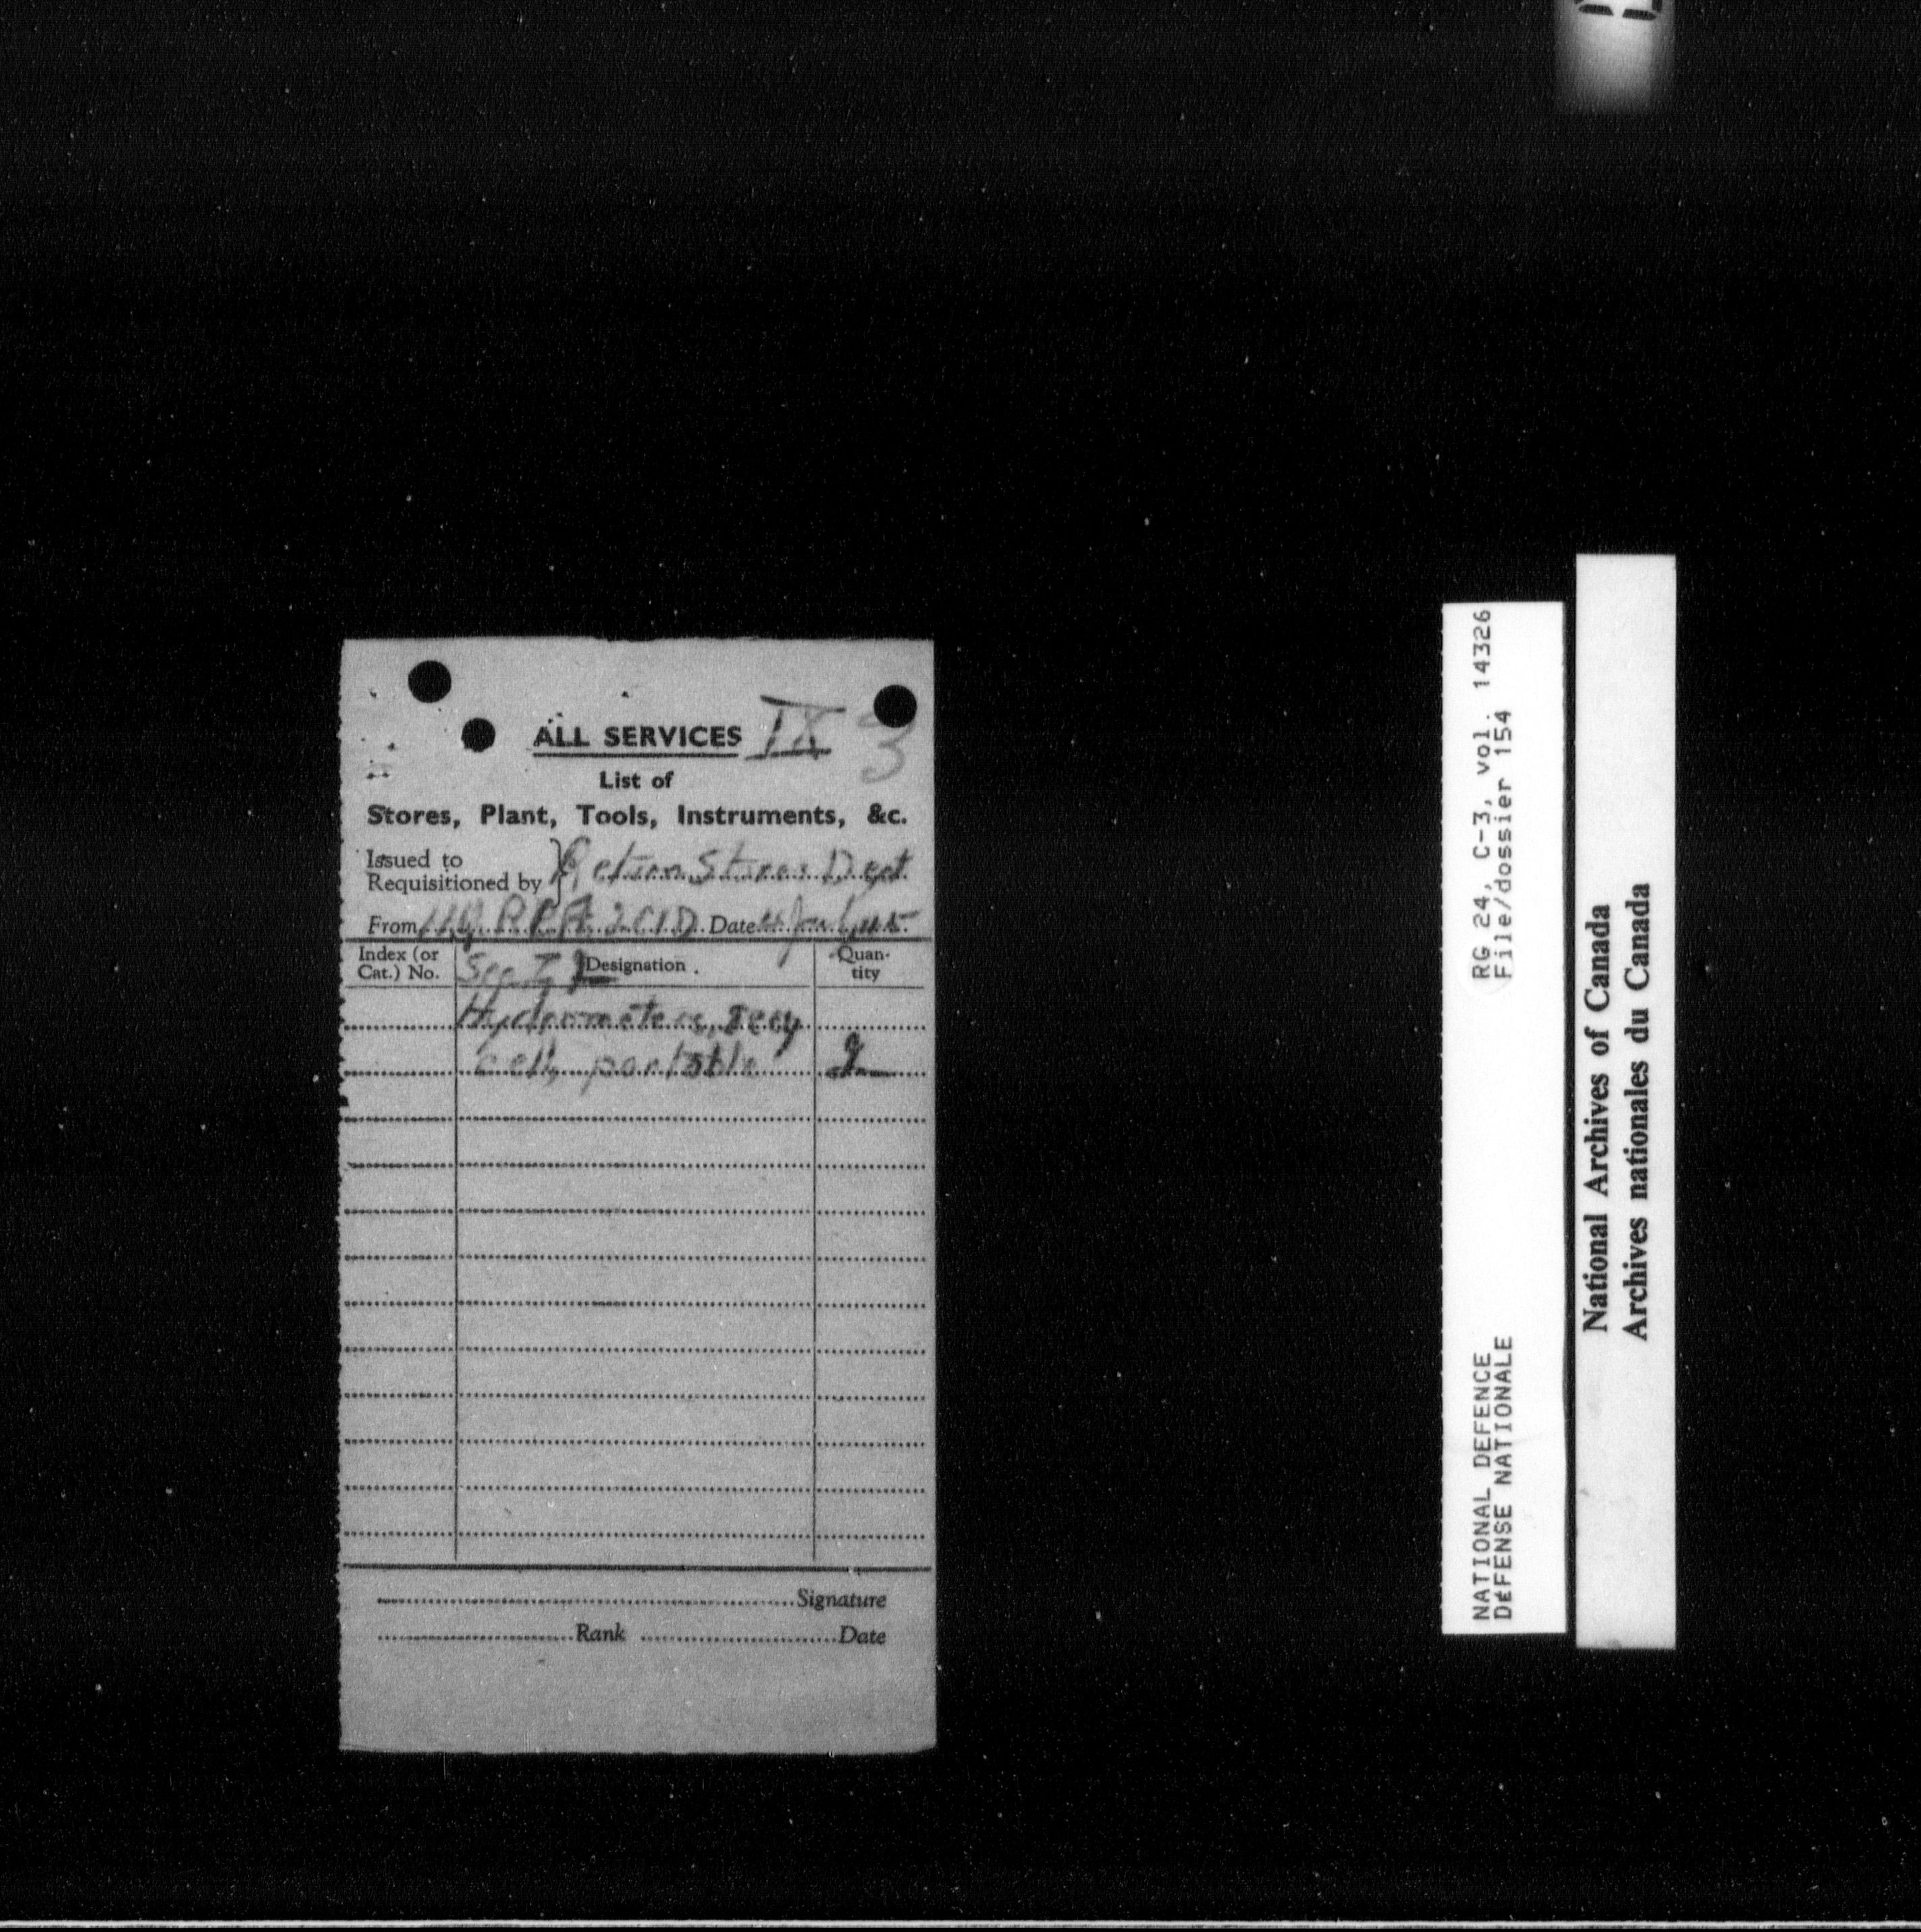 ALL SERVICES IX 3
List of
Stores, Plant, Tools, Instruments, &c.
Issued to
Requisitioned by } Return Stores Dept
From HQ RCA 2 CID Date 4 July 45
Index (or Cat.) No. Designation Quantity
Sec.
Hydrometers, secy
cell, portable 2
Signature
Rank Date
RG 24, C-3, vol. 14326
File/dossier 154
NATIONAL DEFENCE
DéFENSE NATIONALE
National Archives of Canada
Archives nationales du Canada